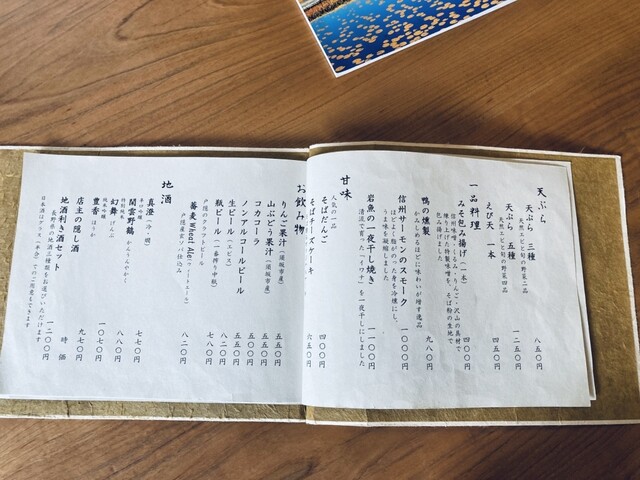 天ぷら
天ぷら 三種 八五〇円
天然エビと旬の野菜二品
天ぷら 五種 一二五〇円
天然エビと旬の野菜四品
えび天 一本 四五〇円
一品料理
みそ包み揚げ(一本) 四〇〇円
信州味噌・くるみ・りんご・沢山の具材で
練り上げた特製味噌を、そば粉の生地で
包み揚げ
鴨の燻製 九八〇円
かみしめるほどに味わいが増す逸品
信州サーモンのスモーク 一〇〇〇円
ほどよく脂がのった身を冷燻にし、
うま味を凝縮しました
岩魚の一夜干し焼き 一一〇〇円
清流で育った「イワナ」を一夜干しにしました
甘味
人気の一品
そばだんご 四〇〇円
そばチーズケーキ 六五〇円
お飲み物
りんご果汁(須坂市産) 五五〇円
山ぶどう果汁(須坂市産) 五五〇円
コカコーラ 五五〇円
ノンアルコールビール 五〇〇円
生ビール(エビス) 八二〇円
瓶ビール(一番搾り中瓶) 七八〇円
戸隠のクラフトビール
蕎麦Wheat Ale(ウィートエール) 八二〇円
戸隠産玄ソバ仕込み
地酒
真澄(冷・燗) 七七〇円
辛口吟醸
関雲野鶴 かんうんやかく 八八〇円
特別純米
幻舞 げんぶ 一〇七〇円
純米吟醸
豊香 ほうか 九七〇円
店主の隠し酒 時価
地酒利き酒セット 一二〇〇円
長野県の地酒三種類をお選びいただけます
日本酒はグラス(半合)でのご用意もできます